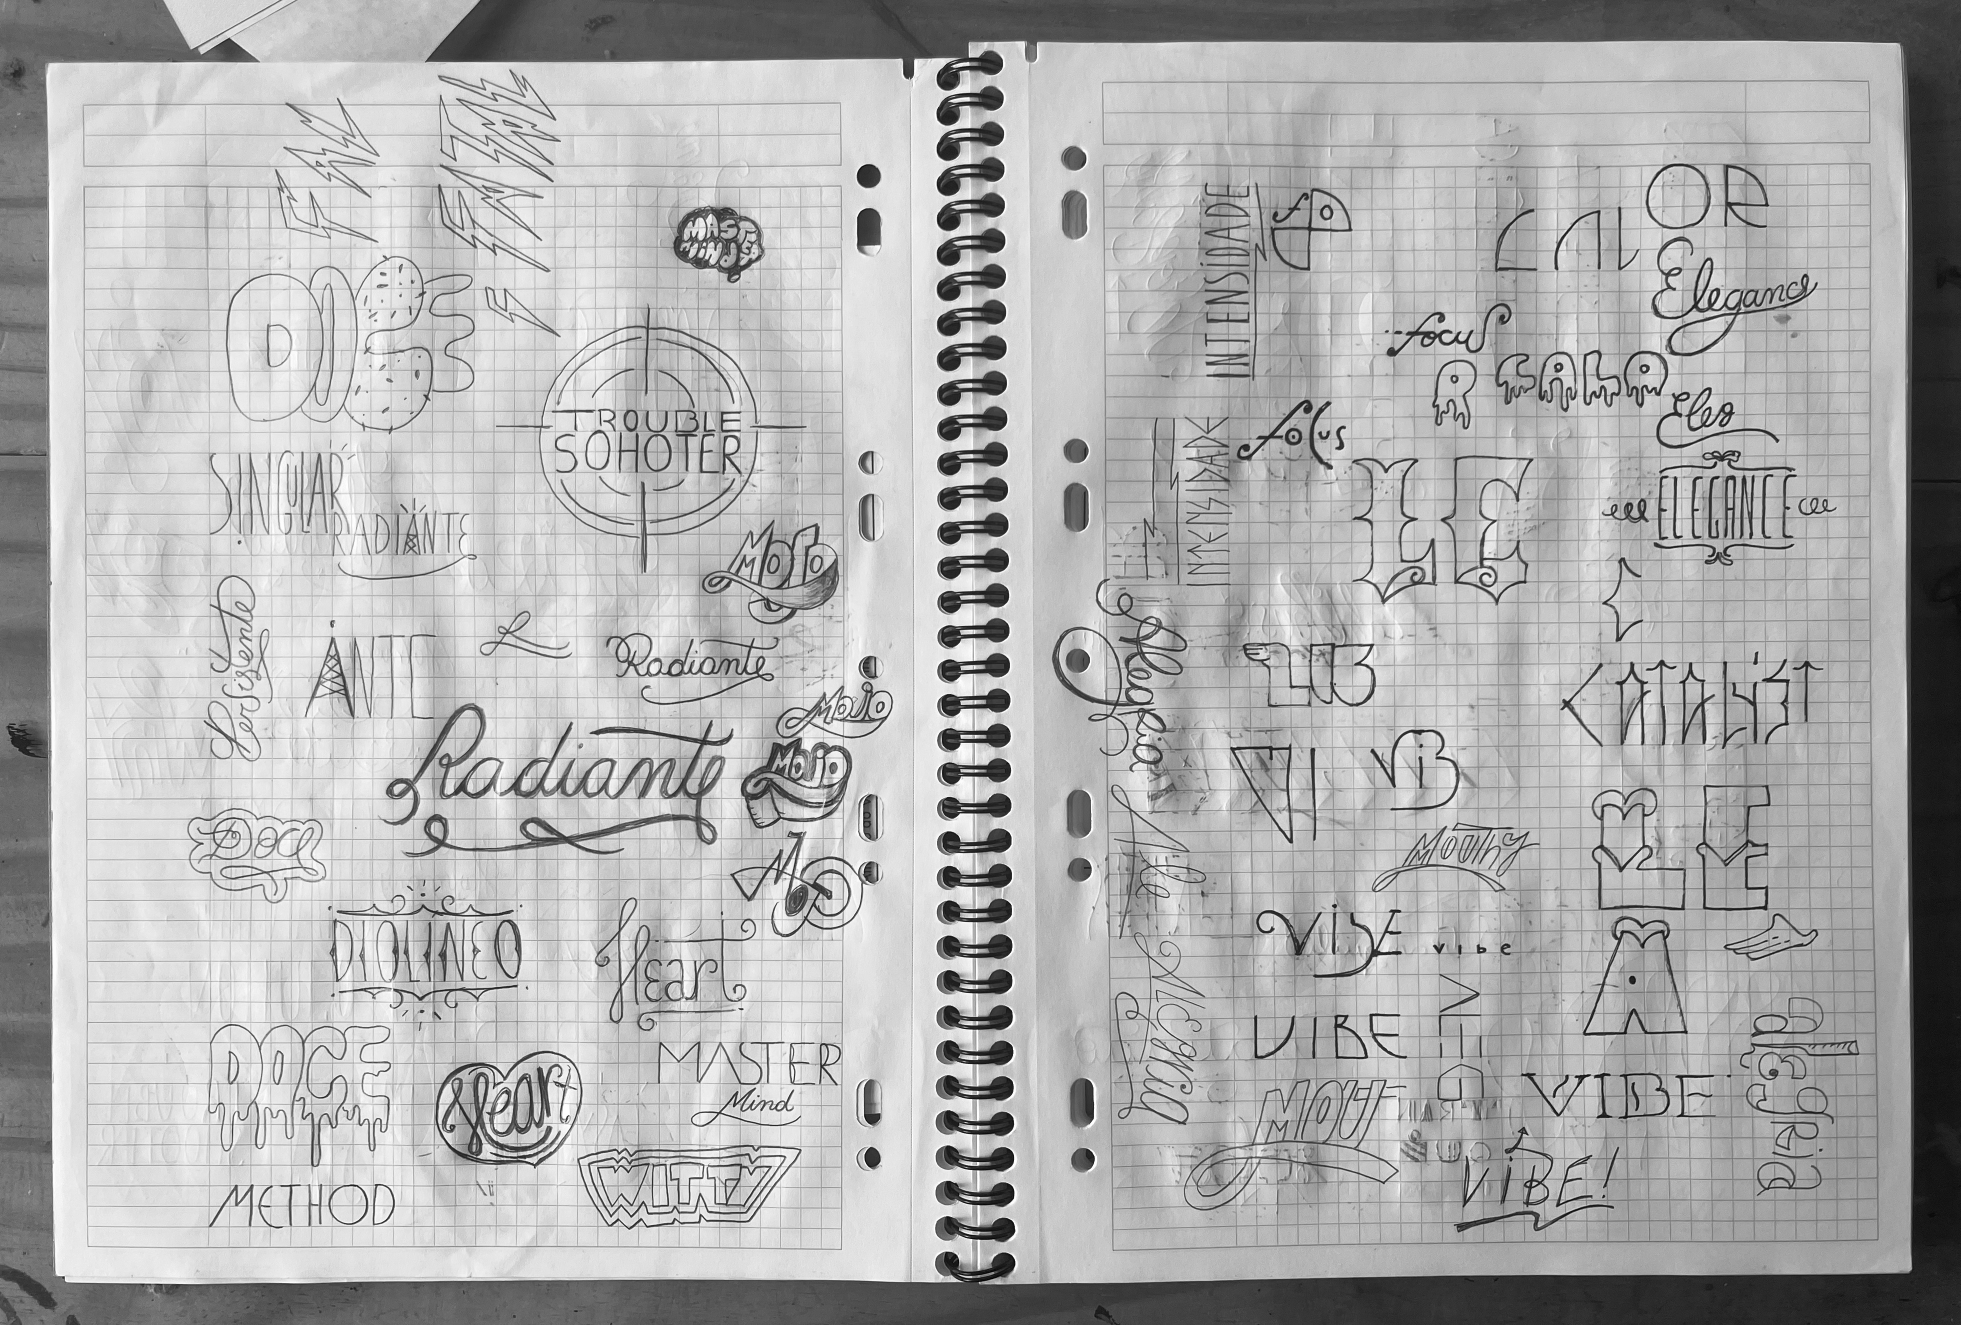 FATAL
MASTER
MIND
TROUBLE
SOHOTER
SINGULAR
RADIANTE
MOJO
Persistente
ANTE
Radiante
MOJO
Radiante
MOJO
Doce
DIOLINEO
Heart
DOCE
Heart
MASTER
Mind
METHOD
WITTY
INTENSIDADE
fo
CAL
OR
Elegance
focus
CALO
focus
Eleg
INTENSIDADE
LE
ELEGANCE
Alegria
CATALYST
VI
VIB
Mouthy
VIBE
vibe
VIBE
VIBE
MOUT
VIBE!
alegria